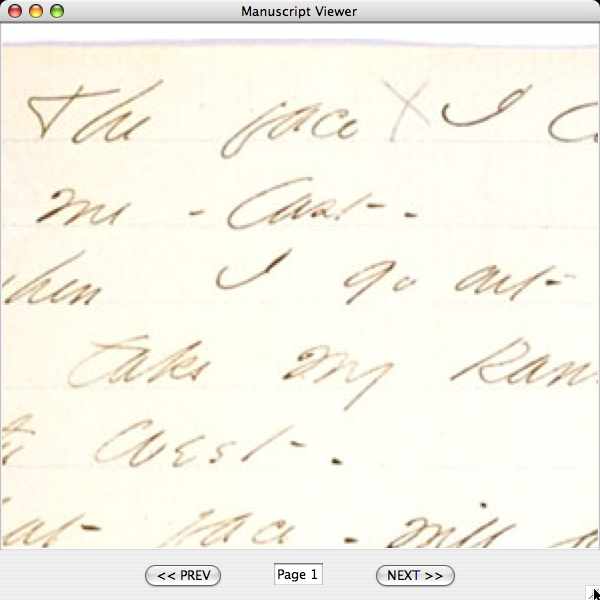 Manuscript Viewer
The face X I
me - last -
hen I go out -
take my Ran
West -
at face - will
<< PREV
Page 1
NEXT >>